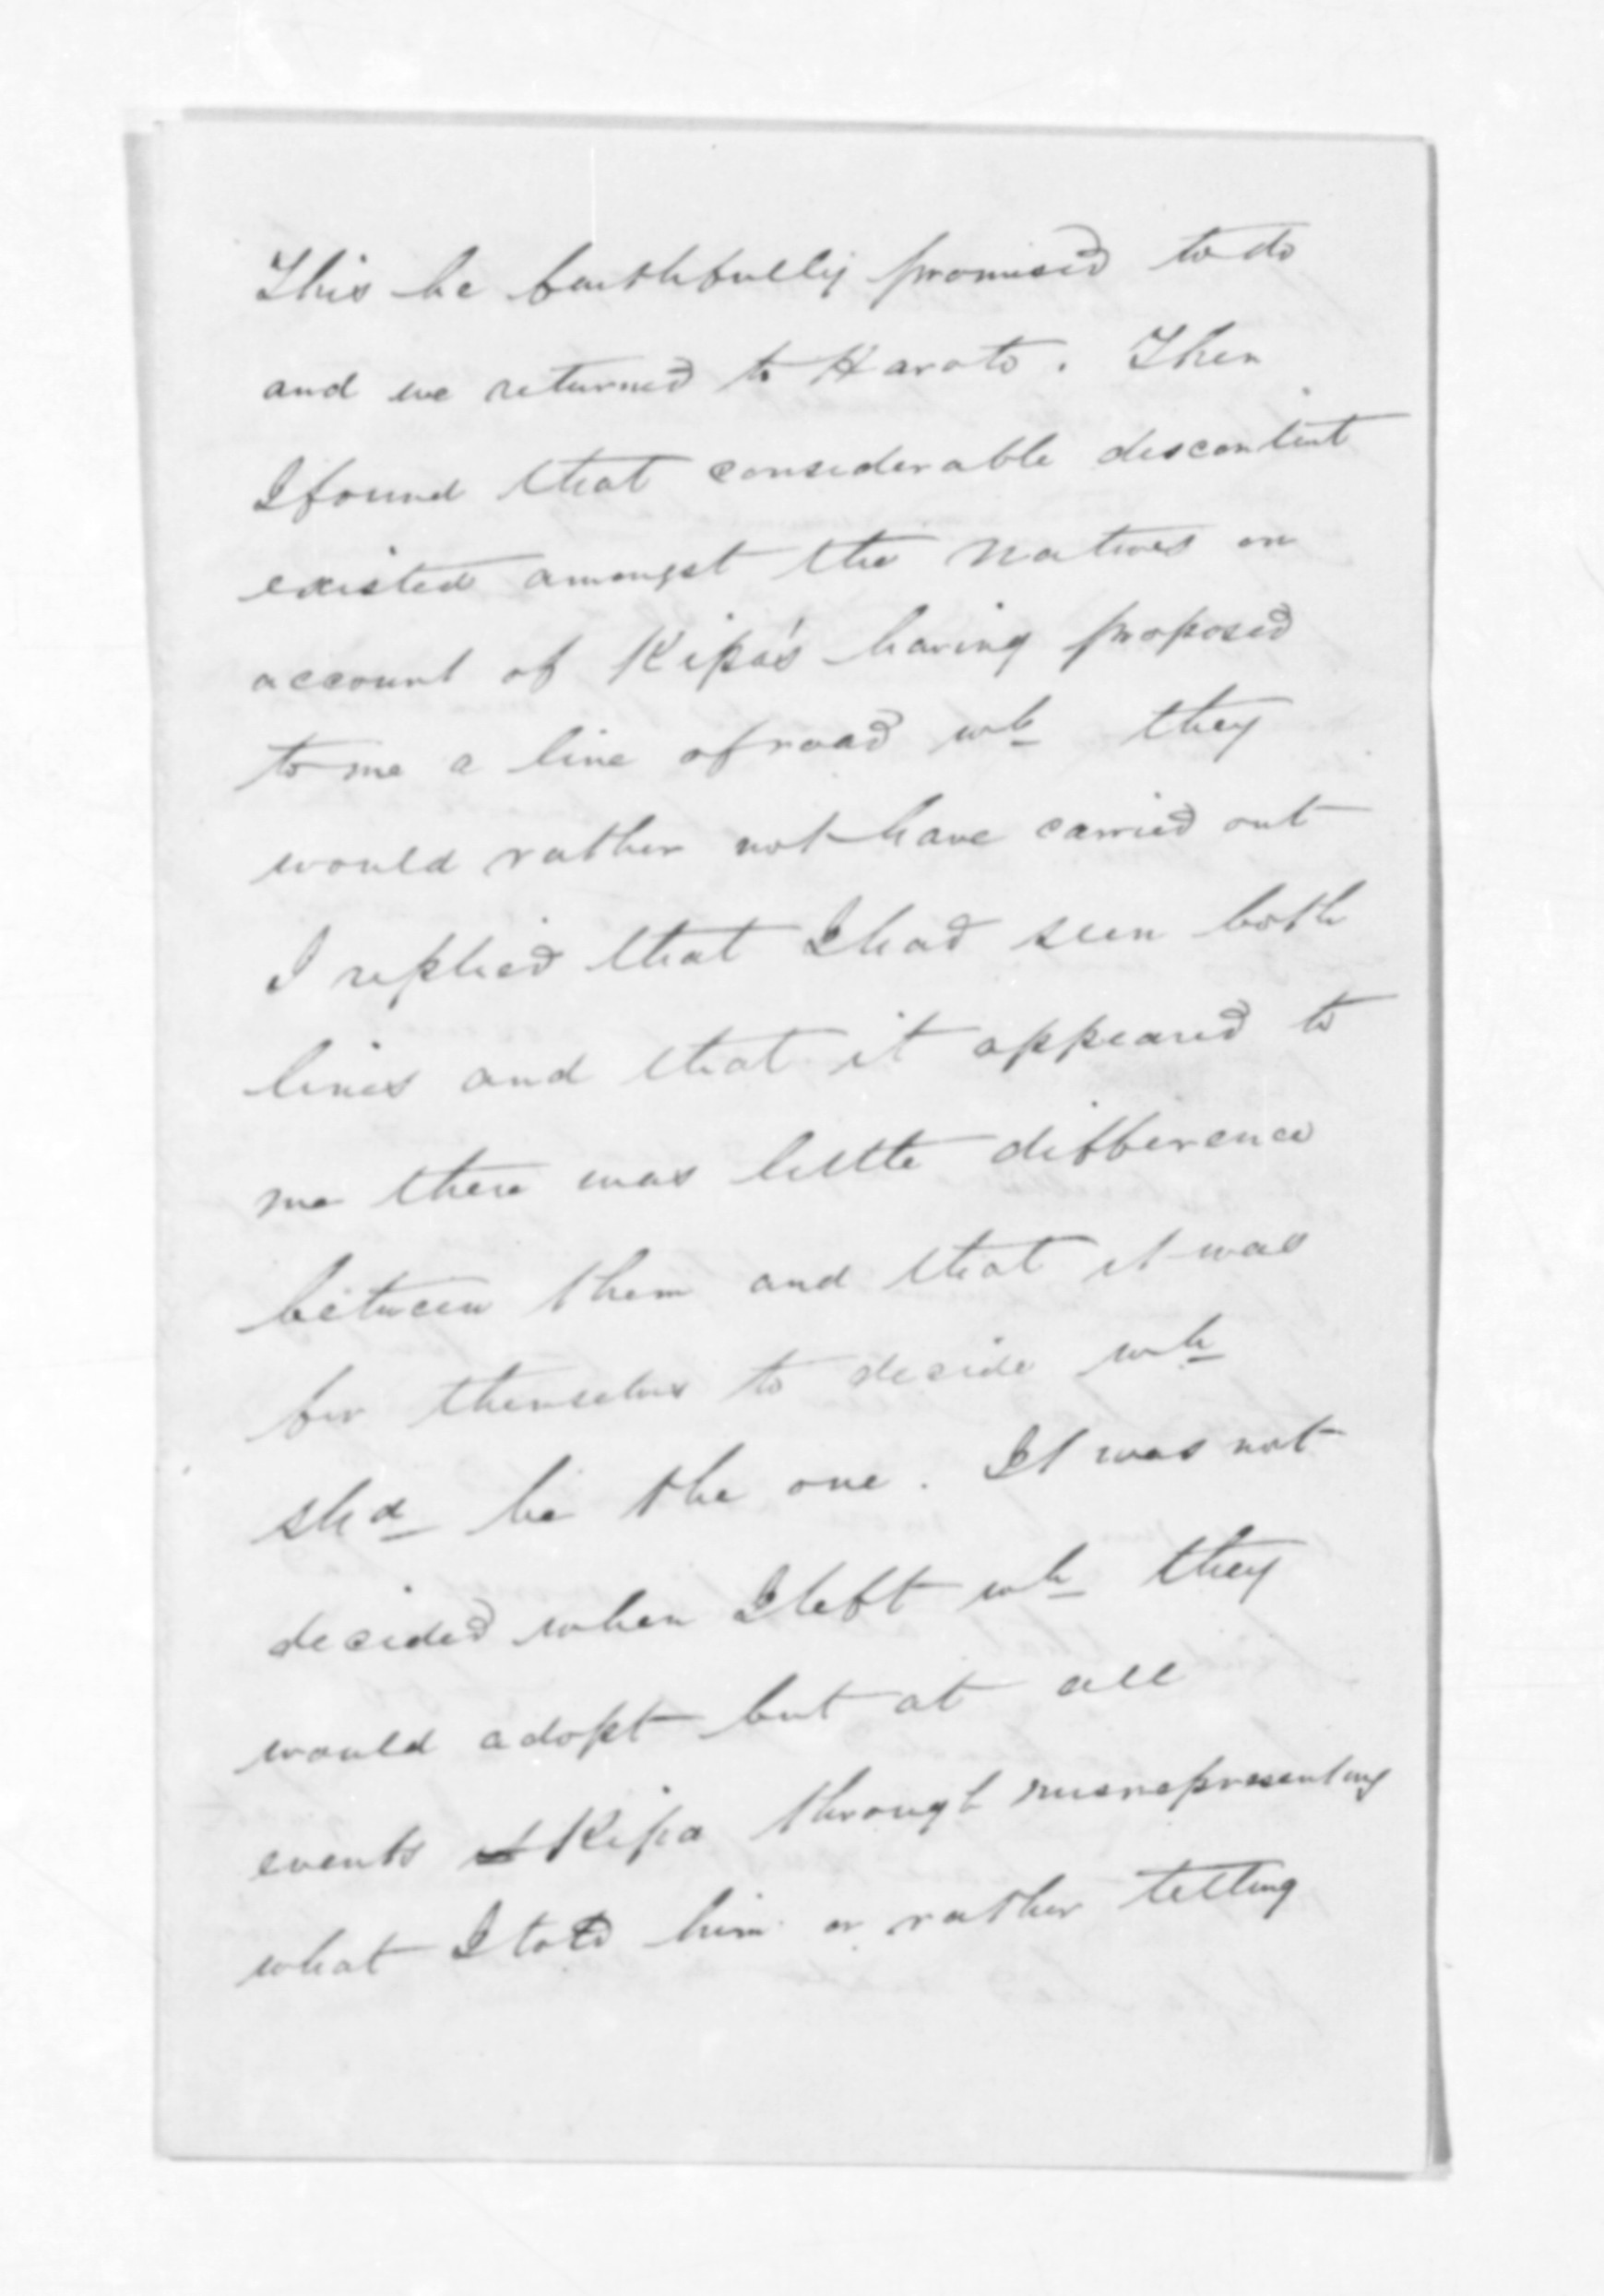 This he faithfully promised to do
and we returned to Haroto. Then
I found that considerable discontent
existed amongst the Natives on
account of Kipa's having proposed
to me a line of road wh they
would rather not have carried out
I replied that I had seen both
lines and that it appeared to
me there was little difference
between them and that it was
for themselves to decide wh
shd be the one. It was not
decided when I left wh they
would adopt but at all
events Kipa through misrepresenting
what I told him or rather telling